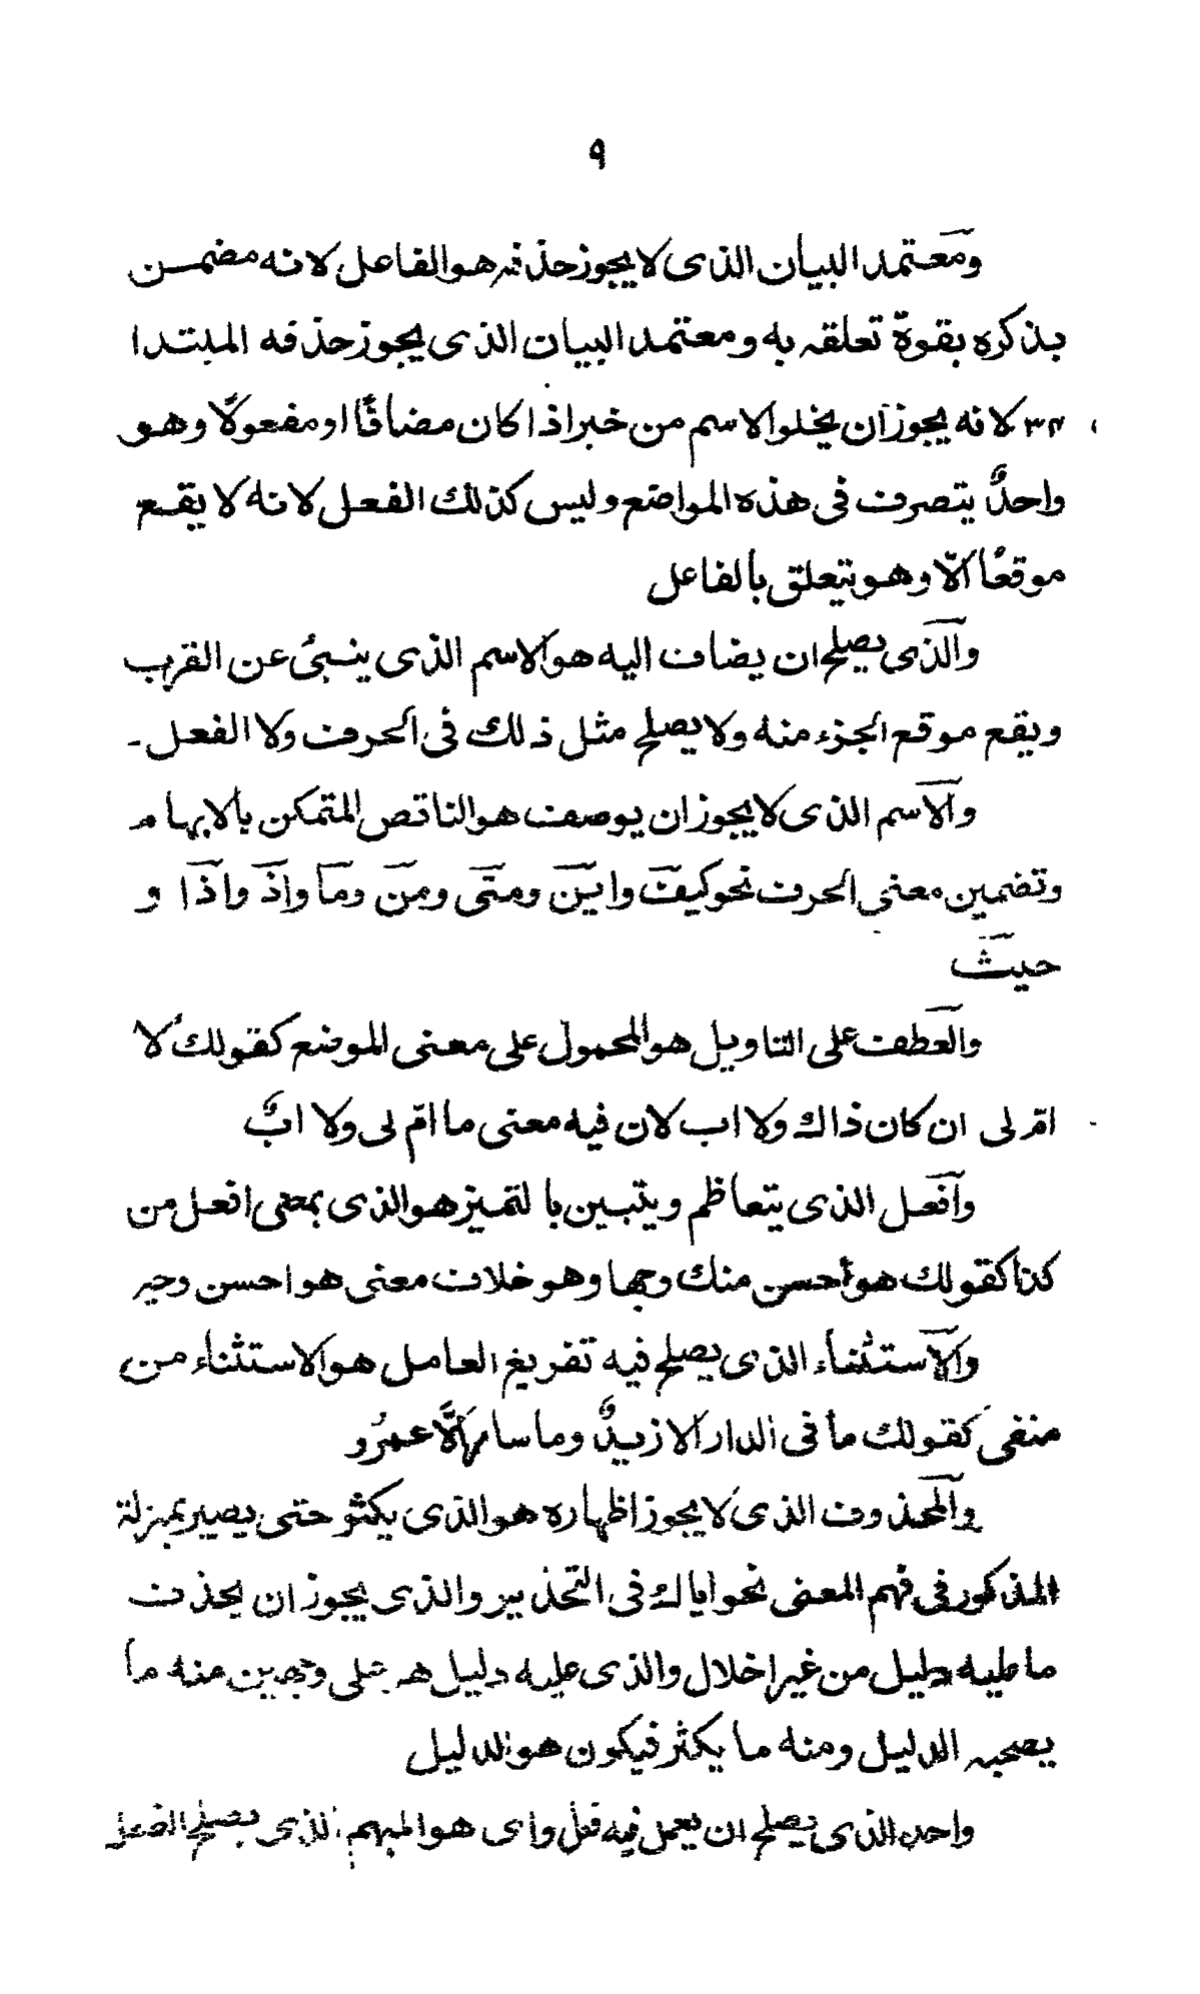 ٩
ومعتمد البيان الذى لا يجوز حذفه هو الفاعل لانه مضمن
بذكره بقوة تعلقه به ومعتمد البيان الذى يجوز حذفه المبتدا
لانه يجوز ان يخلو الاسم من خبر اذا كان مضافًا او مفعولًا وهو
واحدٌ يتصرف فى هذه المواضع وليس كذلك الفعل لانه لا يقع
موقعًا الّا وهو يتعلق بالفاعل
والذى يصلح ان يضاف اليه هو الاسم الذى ينبئ عن القرب
ويقع موقع الجزء منه ولا يصلح مثل ذلك فى الحرف ولا الفعل ـ
والاسم الذى لا يجوز ان يوصف هو الناقص المتمكن بالابهام
وتضمين معنى الحرف نحو كيف واين ومتى ومن وما واذ واذا و
حيث
والعطف على التاويل هو المحمول على معنى الموضع كقولك لا
امّ لى ان كان ذاك ولا اب لان فيه معنى ما امّ لى ولا ابٌ
وافعل الذى يتعاظم ويتبين بالتميز هو الذى بمعنى افعل من
كذا كقولك هو أحسن منك وجها وهو خلاف معنى هو احسن وجه
والاستثناء الذى يصلح فيه تفريغ العامل هو الاستثناء من
منفى كقولك ما فى الدار الا زيدٌ وما سار الّا عمرُو
والمحذوف الذى لا يجوز اظهاره هو الذى يكثر حتى يصير بمنزلة
المذكور فى فهم المعنى نحو اياك فى التحذير والذى يجوز ان يحذف
ما عليه دليل من غير اخلال والذى عليه دليل هو على وجهين منه ما
يصحبه الدليل ومنه ما يكثر فيكون هو الدليل
واحد الذى يصلح ان يعمل فيه قتل واى هو المبهم الذى يصلح الفعل